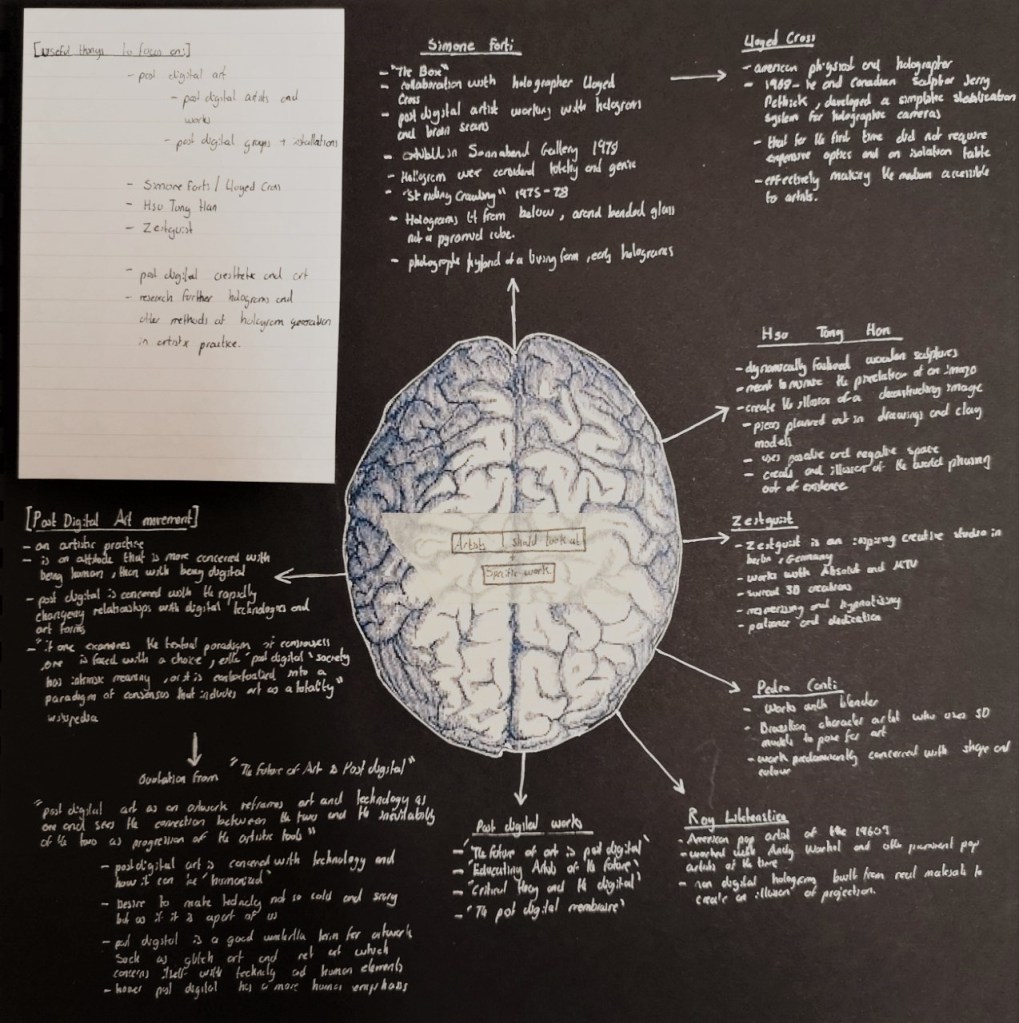 [Useful things to focus on:]
- post digital art
- post digital artists and
works
- post digital groups + installations
- Simone Forti / Lloyed Cross
- Hsu Tong Han
- Zeitguist
- post digital aesthetic and art
- research further holograms and
other methods of hologram generation
in artistic practice.
Simone Forti
- "The Box"
- collaboration with holographer Lloyed
Cross
- post digital artist working with hologram
and brain scans
- exhibit in Sonnabend Gallery 1978
- Hologram were considered and
- "Striding Crawling" 1975-78
- Holograms lit from below, around bended glass
not a pyramid cube.
- photographic hybrid of a living form, early holograms
Lloyed Cross
- american physicist and holographer
- 1968 - he and Canadian sculptor Jerry
Pethick, developed a simplistic stabilization
system for holographic cameras
- that for the first time did not require
expensive optics and an isolation table
- effectively making the medium accessible
to artists.
Hsu Tong Han
- dynamically wooden sculptures
- meant to mimic the pixelation of an image
- create the illusion of a deconstructing image
- pieces planned out in drawings and clay
models
- uses positive and negative space
- creats and illusion of the world phasing
out of existence
Zeitguist
- Zeitguist is an inspiring creative studio in
berlin, Germany
- works with Absolut and MTV
- surreal 3D creations
- mesmerising and hypnotizing
- patience and dedication
Pedro Conti
- Works with blender
- Brasilian character artist who uses 3D
models to pose for art
- work predominantly concerned with shape and
colour
Roy Lichtenstien
- American pop artist of the 1960s
- worked with Andy Warhol and other prominent pop
artists of the time
- non digital holograms built from reel materials to
create an illusion of projection.
Artists I should look at
+
Specific work
[Post Digital Art movement]
- an artistic practice
- is an attitude that is more concerned with
being human, then with being digital
- post digital is concerned with the rapidly
changeing relationships with digital technologies and
art forms
- "if one examines the textual paradigm of consensus,
one is faced with a choice, either "post digital" society
has intrinsic meaning, or it is contextualised into a
paradigm of consensus that includes art as a totality"
wikipedia
Quotation from "The Future of Art is Post digital"
"post digital art as an artwork reframes art and technology as
one and sees the connection between the two and the inevitability
of the two as progression of the artistic tools"
- post digital art is concered with technology and
how it can be "humanised"
- Desire to make technoly not so cold and scary
but as if it is apart of us
- post digital is a good umbrella term for artwork
such as glitch art and net art which
concerns itself with technoly and human elements
- howev post digital has a more human emphasis
Post digital works
- "The future of art is post digital"
- "Educating Artists of the future"
- "Critical theory and the digital"
- "The post digital membrane"